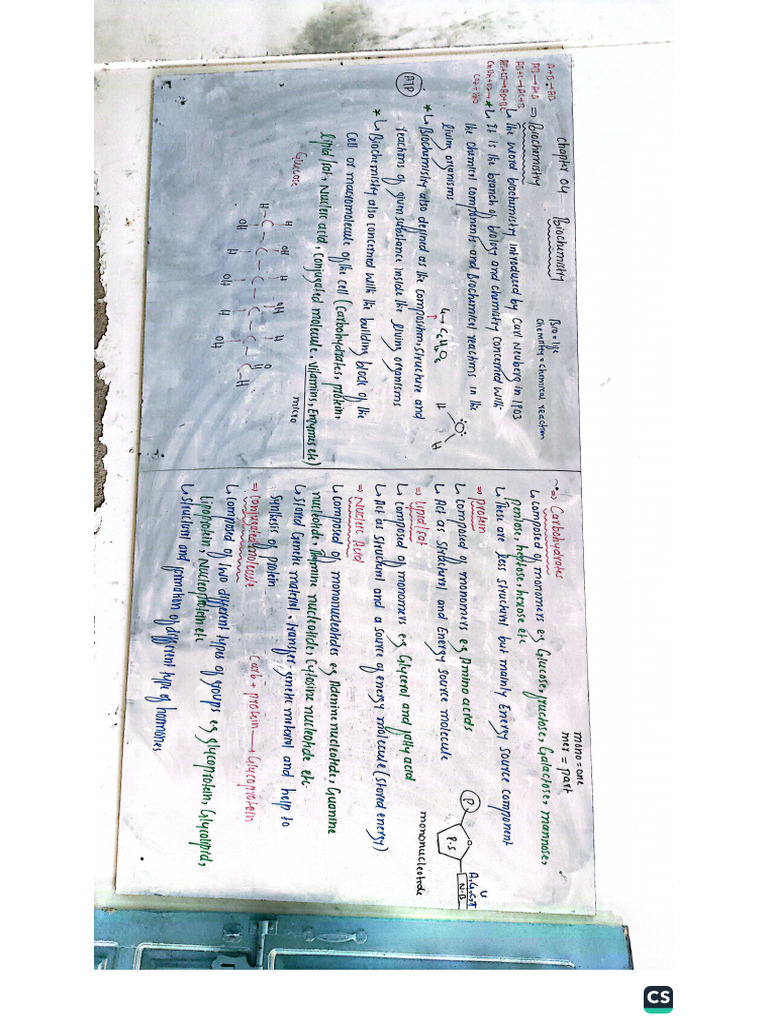 Chapter 04 Biochemistry
Bio = life
Chemistry = chemical reaction
A+B→AB
AB→A+B
AB+C→AC+B
⇒ Biochemistry
↳ The word biochemistry introduced by Carl Neuberg in 1903
* ↳ It is the branch of biology and chemistry concerned with
the chemical components and Biochemical reactions in the
living organisms
* ↳ Biochemistry also defined as the composition, structure and
reactions of given substance inside the living organisms
ATP
* ↳ Biochemistry also concerned with the building block of the
cell or macromolecule of the cell (Carbohydrates, protein,
lipid/fat, Nucleic acid, Conjugated molecule, Vitamins, Enzymes etc)
micro
Glucose
H OH H OH H O
H-C-C-C-C-C-C-H
OH H OH H OH
O
H H
mono = one
mer = part
⇒ Carbohydrates
↳ composed of monomers eg Glucose, fructose, Galactose, mannose,
pentose, heptose, hexose etc
↳ These are less structural but mainly Energy source component
⇒ Protein
↳ composed of monomers eg Amino acids
↳ Act as structural and Energy source molecule
P
P.S
A,G,C,T
U
N.B
mononucleotide
⇒ Lipid/fat
↳ composed of monomers eg Glycerol and fatty acid
↳ Act as structural and a source of energy molecule (stored energy)
⇒ Nucleic Acid
↳ composed of mononucleotides eg Adenine nucleotide, Guanine
nucleotide, Thymine nucleotide, Cytosine nucleotide etc
↳ stored Genetic material, transfer genetic material and help to
synthesis of protein
⇒ Conjugated molecule Carb + protein → Glycoprotein
↳ composed of two different types of groups eg glycoprotein, Glycolipid,
lipoprotein, Nucleoprotein etc
↳ structural and formation of different type of hormones
CS